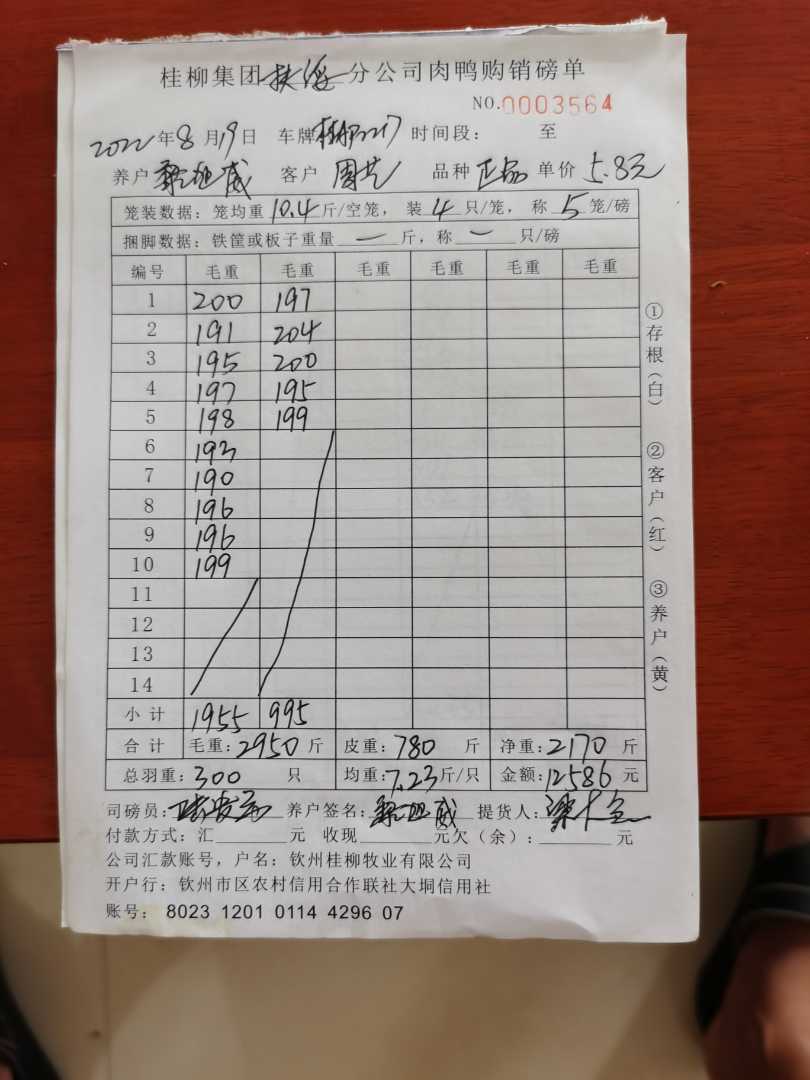 桂柳集团扶绥分公司肉鸭购销磅单
NO.0003564
2022年8月19日 车牌 时间段: 至
养户 威 客户 周 品种 正品 单价 5.8元
笼装数据:笼均重10.4斤/空笼,装4只/笼,称5笼/磅
捆脚数据:铁筐或板子重量一斤,称一只/磅
编号 毛重 毛重 毛重 毛重 毛重 毛重
1 200 197
2 191 204
3 195 200
4 197 195
5 198 199
6 193
7 190
8 196
9 196
10 199
11
12
13
14
小计 1955 995
合计 毛重:2950斤 皮重:780斤 净重:2170斤
总羽重:300只 均重:7.23斤/只 金额:12586元
司磅员: 养户签名: 威 提货人:
付款方式:汇______元 收现______元欠(余):______元
公司汇款账号,户名:钦州桂柳牧业有限公司
开户行:钦州市区农村信用合作联社大垌信用社
账号: 8023 1201 0114 4296 07
①存根(白) ②客户(红) ③养户(黄)